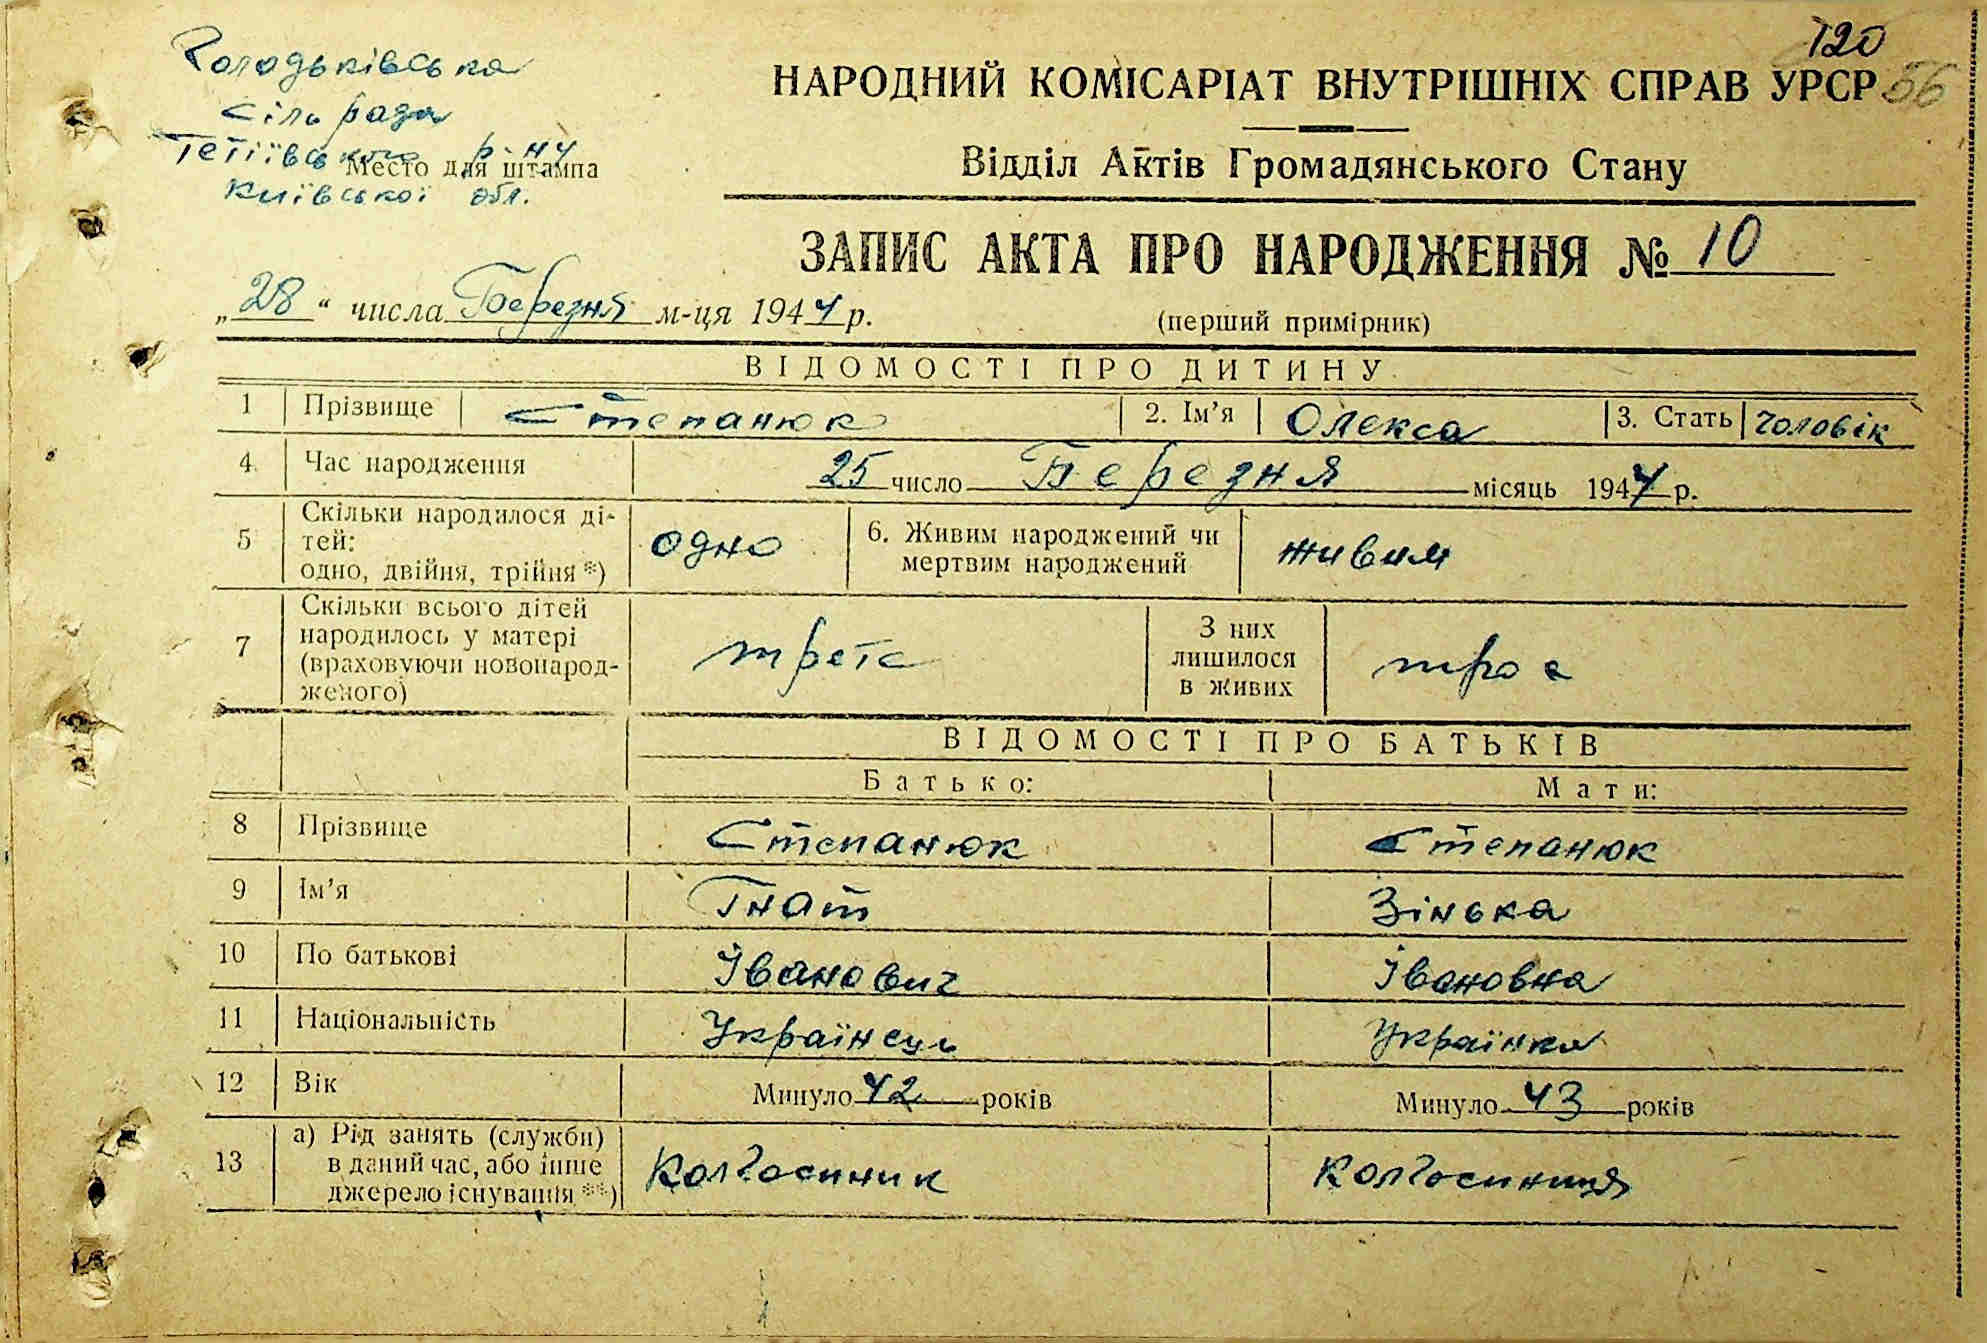 Голодьківська
сільрада
Тетіївського р-ну
Место для штампа
Київської обл.
120
56
НАРОДНИЙ КОМІСАРІАТ ВНУТРІШНІХ СПРАВ УРСР
Відділ Актів Громадянського Стану
ЗАПИС АКТА ПРО НАРОДЖЕННЯ № 10
„28“ числа Березня м-ця 1944 р.
(перший примірник)
ВІДОМОСТІ ПРО ДИТИНУ
1 Прізвище Степанюк 2. Ім’я Олекса 3. Стать чоловік
4 Час народження 25 число Березня місяць 1944 р.
5 Скільки народилося ді-
тей:
одно, двійня, трійня *) одно 6. Живим народжений чи
мертвим народжений живим
7 Скільки всього дітей
народилось у матері
(враховуючи новонарод-
женого) третє З них
лишилося
в живих троє
ВІДОМОСТІ ПРО БАТЬКІВ
Батько: Мати:
8 Прізвище Степанюк Степанюк
9 Ім’я Гнат Зінька
10 По батькові Іванович Івановна
11 Національність Українець Українка
12 Вік Минуло 42 років Минуло 43 років
13 а) Рід занять (служби)
в даний час, або інше
джерело існування **) Колгоспник Колгоспниця